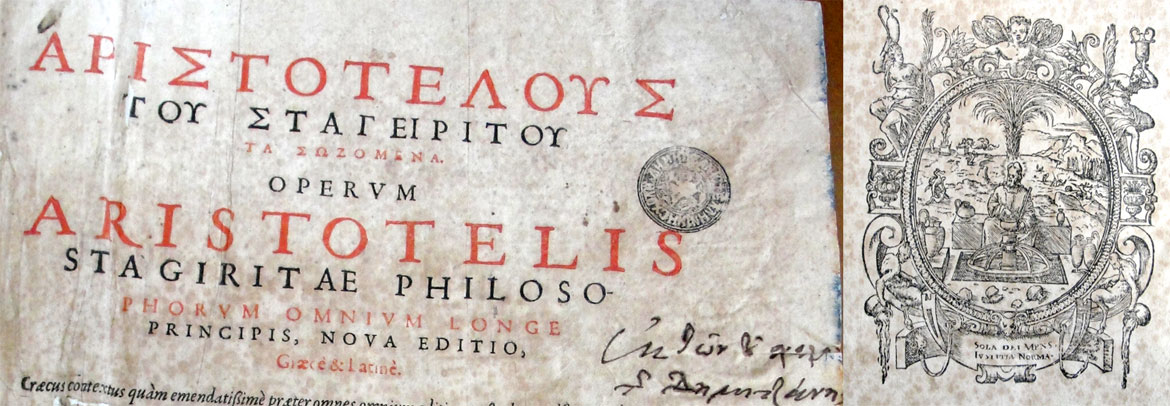 ΑΡΙΣΤΟΤΕΛΟΥΣ
ΤΟΥ ΣΤΑΓΕΙΡΙΤΟΥ
ΤΑ ΣΩΖΟΜΕΝΑ.
OPERVM
ARISTOTELIS
STAGIRITAE PHILOSO-
PHORVM OMNIVM LONGE
PRINCIPIS, NOVA EDITIO,
Græcè & Latinè.
Græcus contextus quàm emendatißimè præter omnes
SOLA DEI MENS
IVSTITIÆ NORMA